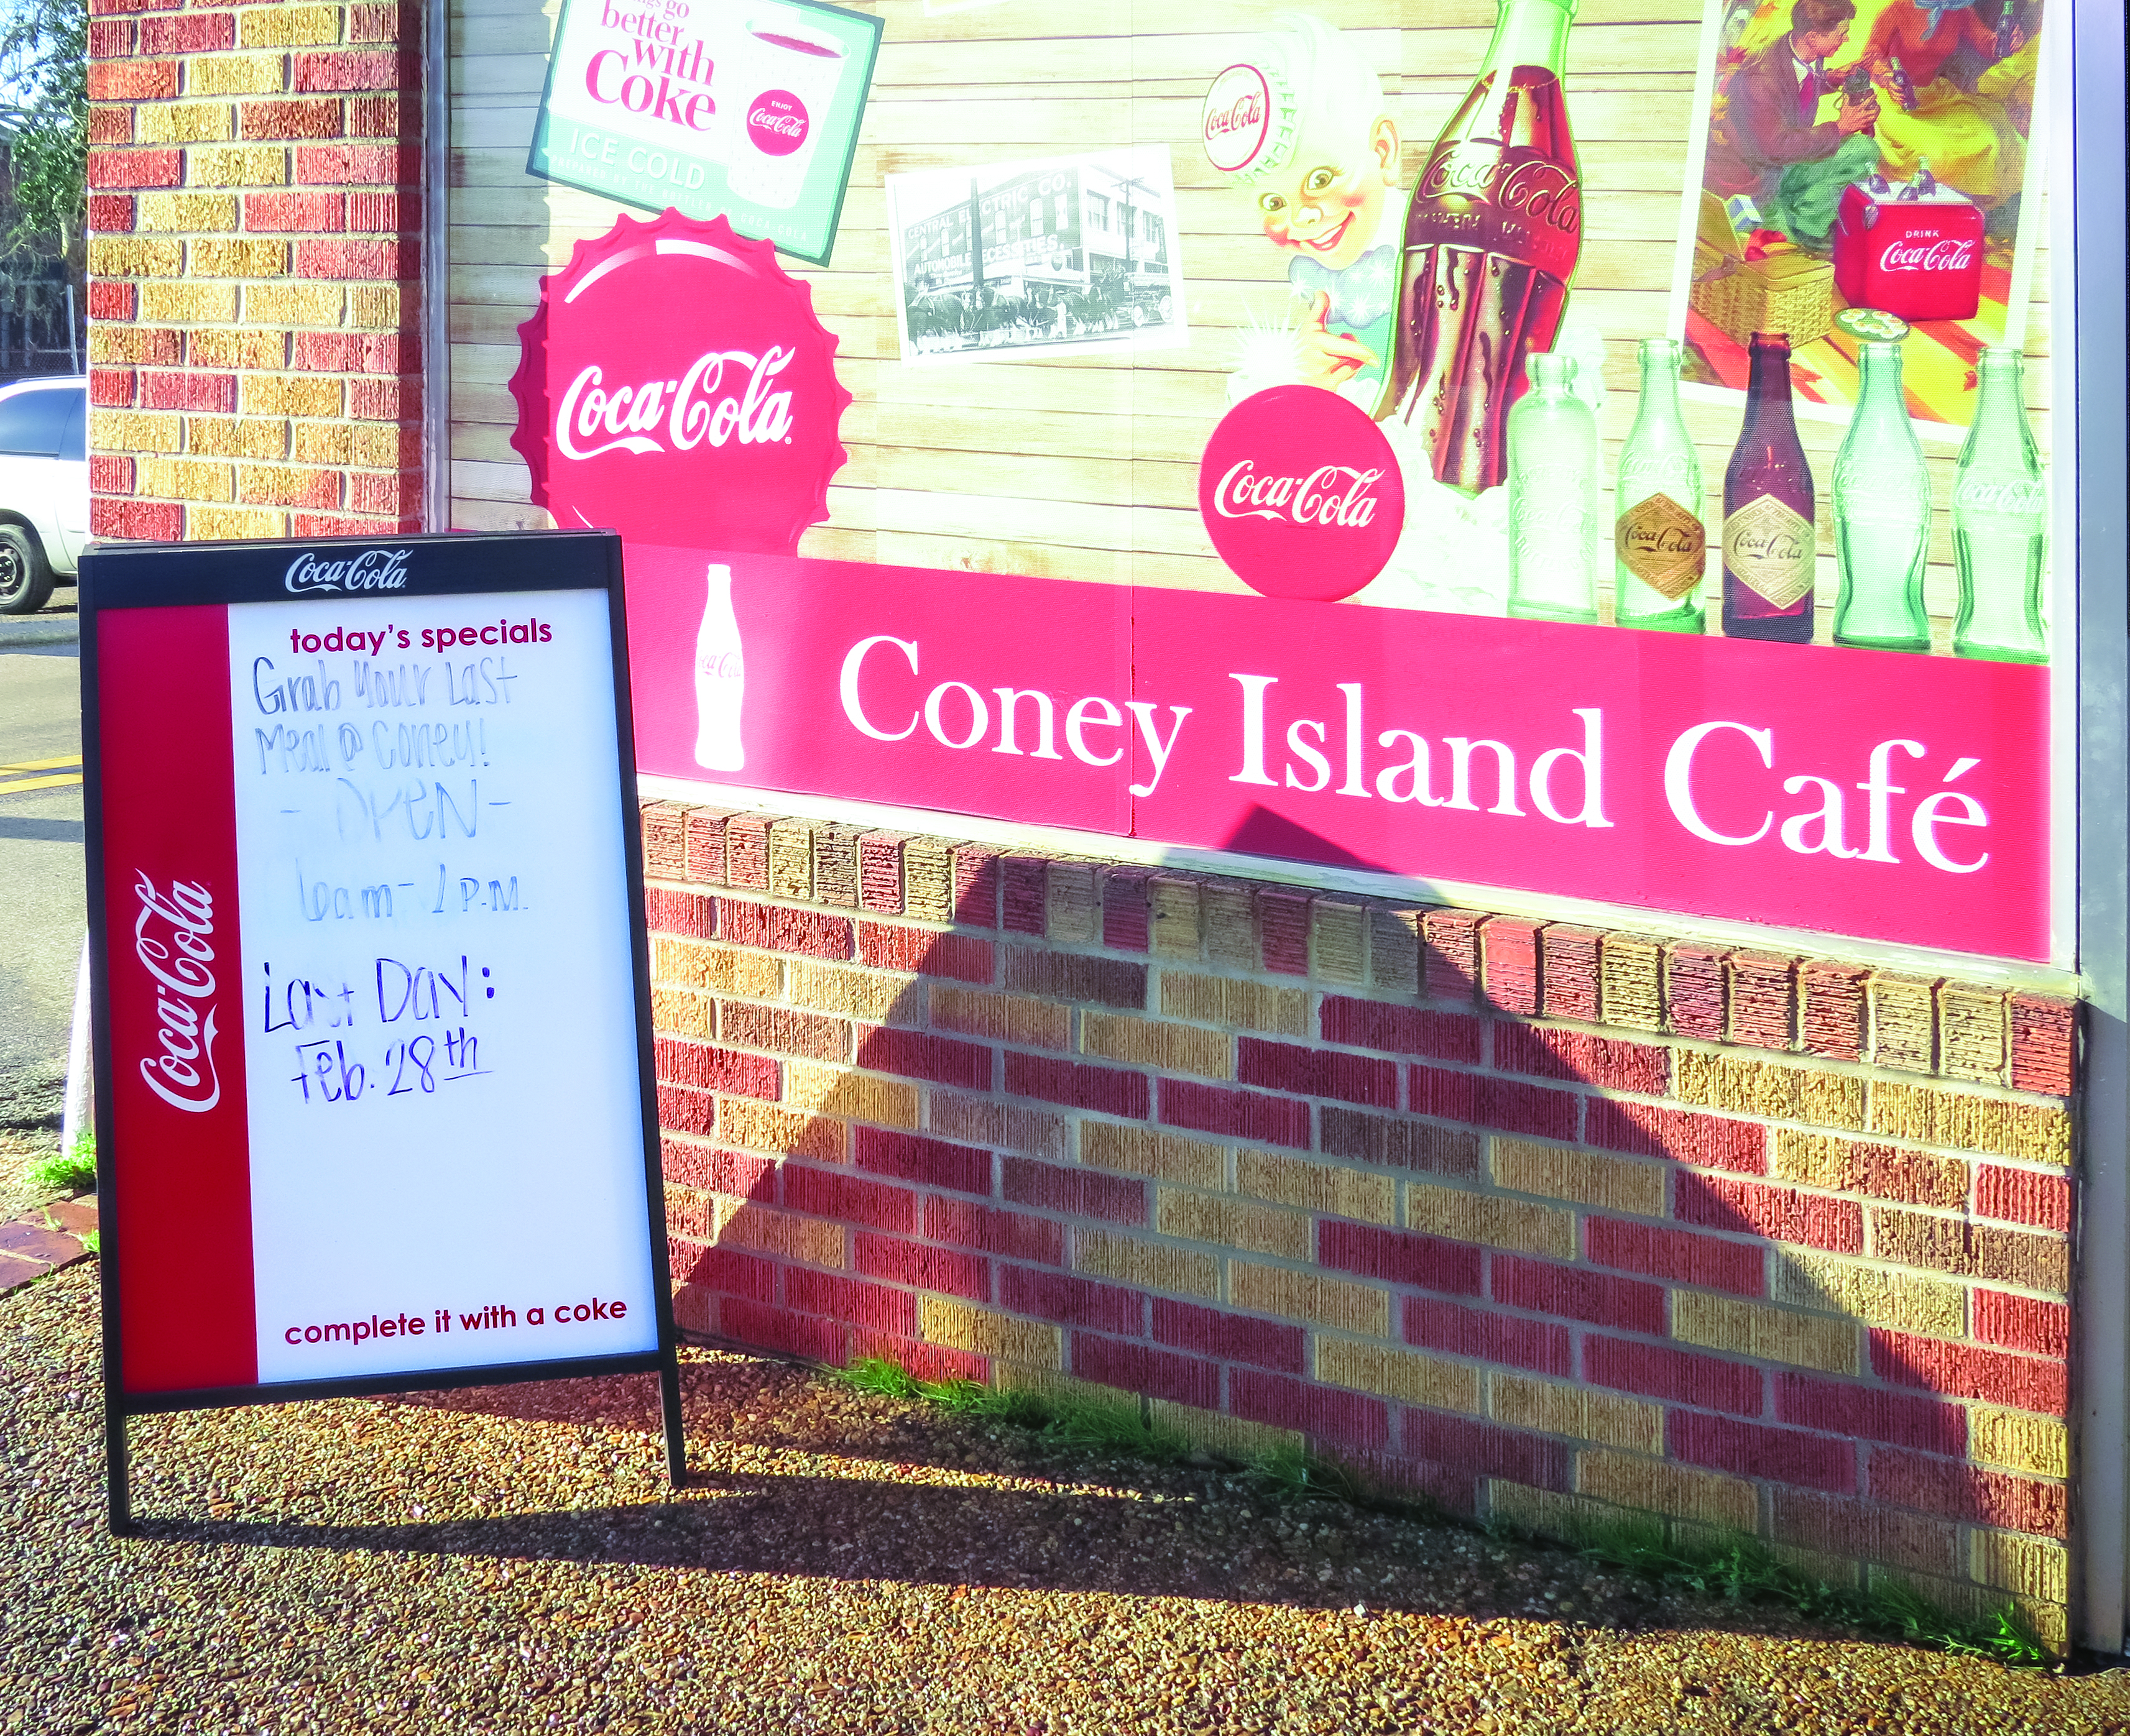 things go
better
with
Coke
ENJOY
Coca-Cola
ICE COLD
CENTRAL ELECTRIC CO.
AUTOMOBILE NECESSITIES
Coca-Cola
Coca-Cola
Coca-Cola
DRINK
Coca-Cola
Coca-Cola
Coca-Cola
Coca-Cola
Coca-Cola
Coney Island Café
Coca-Cola
Coca-Cola
today's specials
Grab Your Last
Meal @ Coney!
- OPEN -
6am - 2 P.M.
Last Day:
Feb. 28th
complete it with a coke